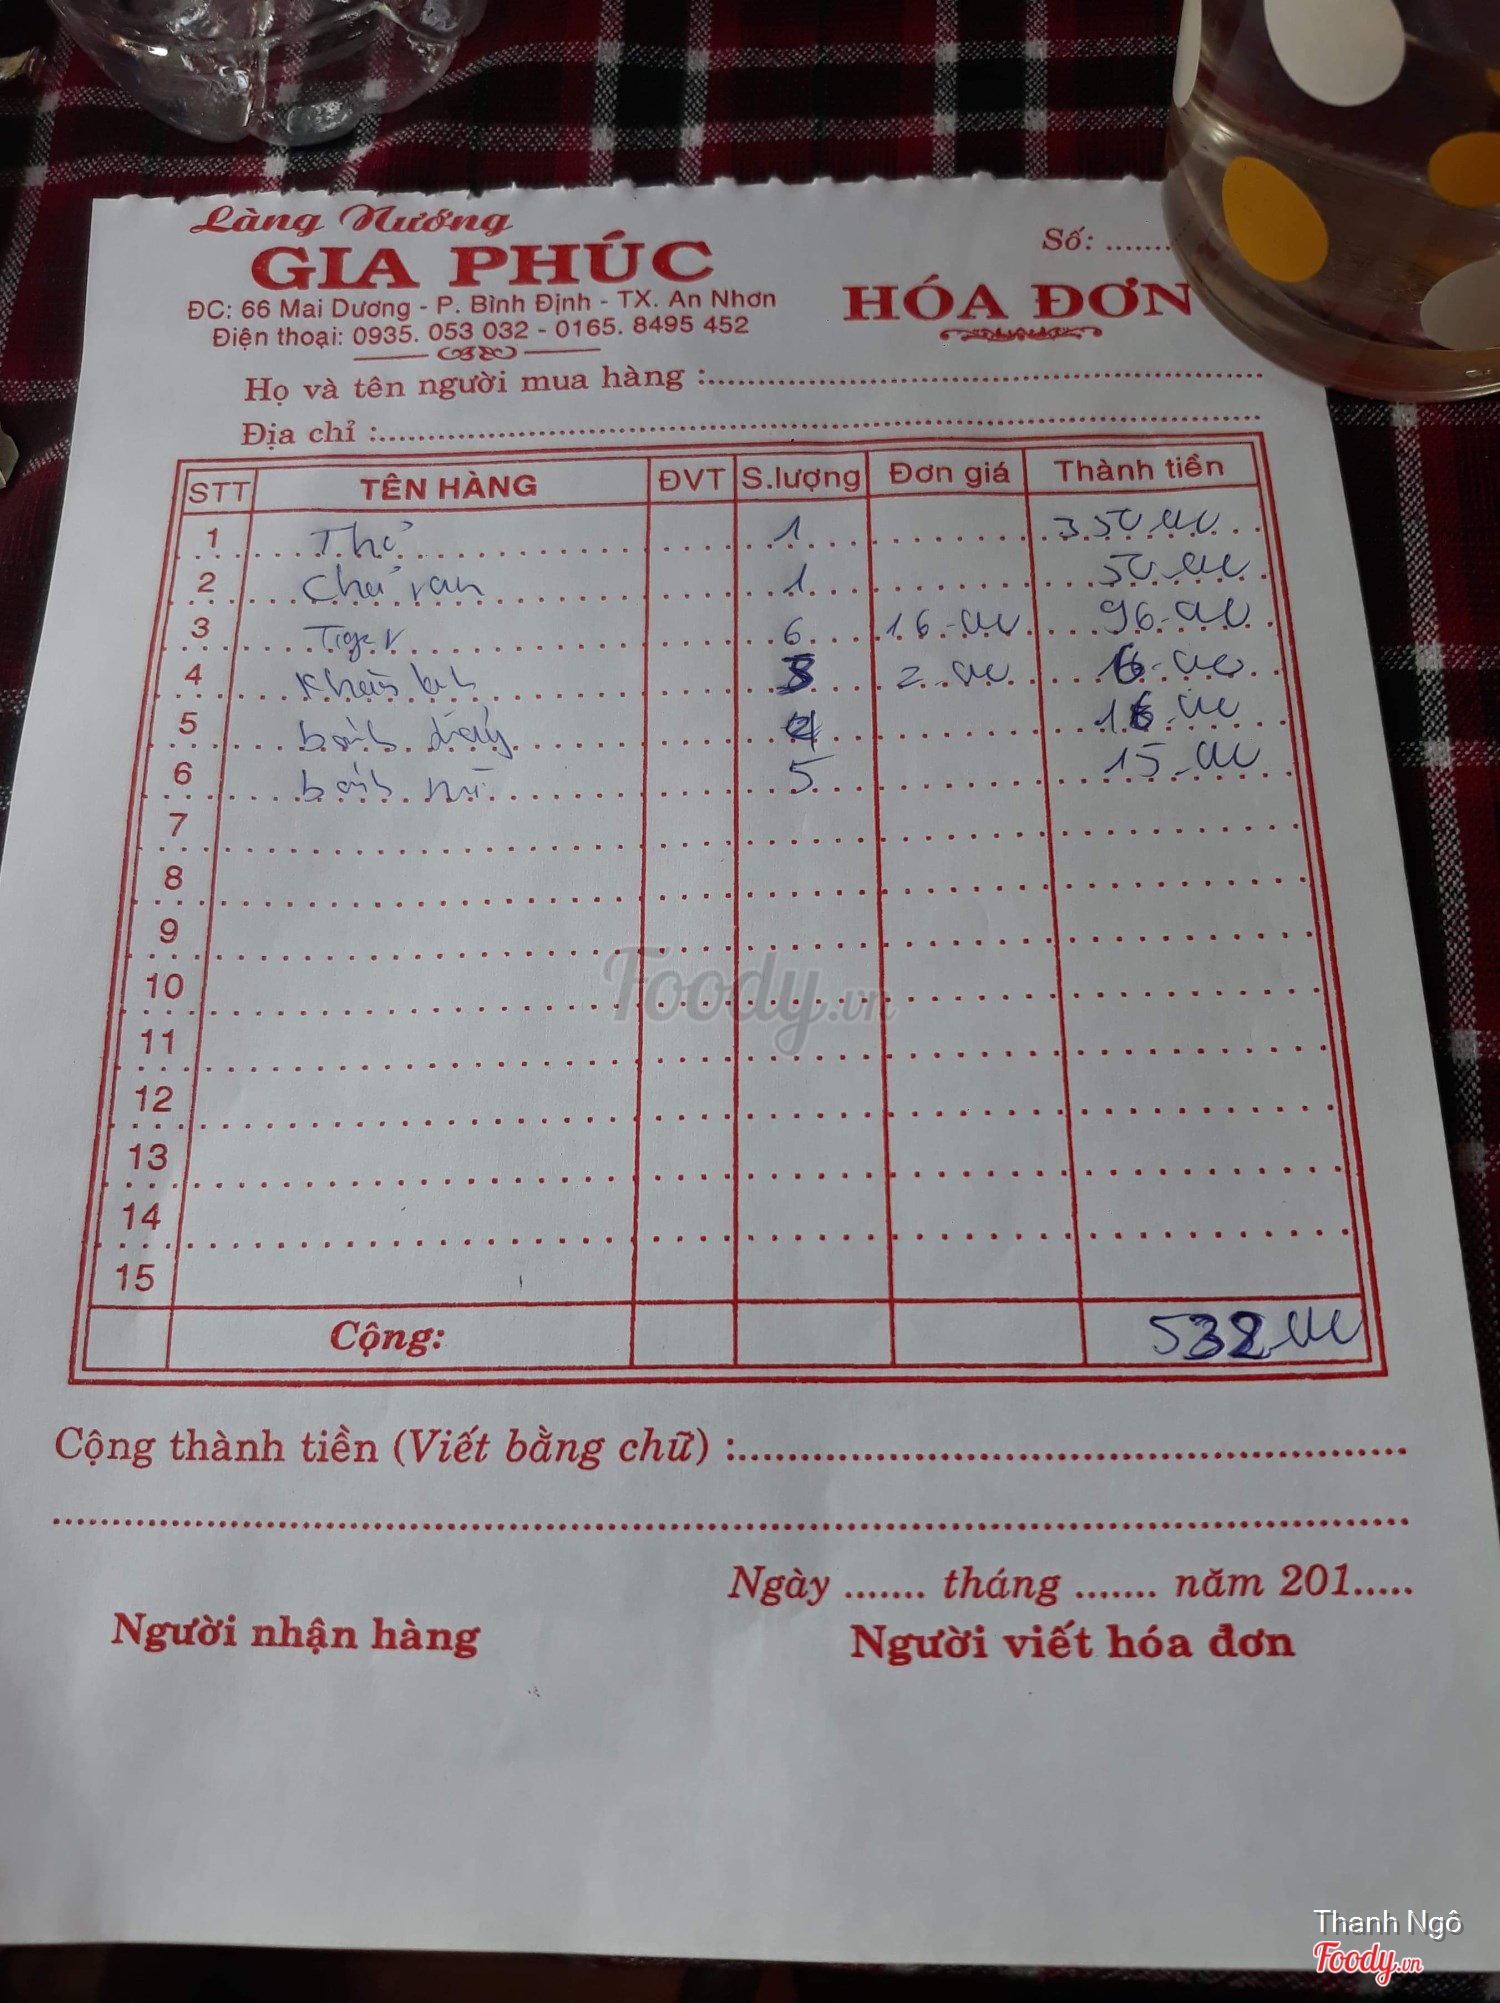 Làng Nướng
GIA PHÚC
ĐC: 66 Mai Dương - P. Bình Định - TX. An Nhơn
Điện thoại: 0935. 053 032 - 0165. 8495 452
Số: .......
HÓA ĐƠN
Họ và tên người mua hàng :
Địa chỉ :
STT TÊN HÀNG ĐVT S.lượng Đơn giá Thành tiền
1 Thỏ 1 350.000
2 Chả ram 1 50.000
3 Tiger 6 16.000 96.000
4 Khăn 2.000
5 bánh
6 bánh mì 5 15.000
7
8
9
10
11
12
13
14
15
Cộng: 532.000
Foody.vn
Cộng thành tiền (Viết bằng chữ) :
Ngày ....... tháng ....... năm 201.....
Người nhận hàng Người viết hóa đơn
Thanh Ngô
Foody.vn